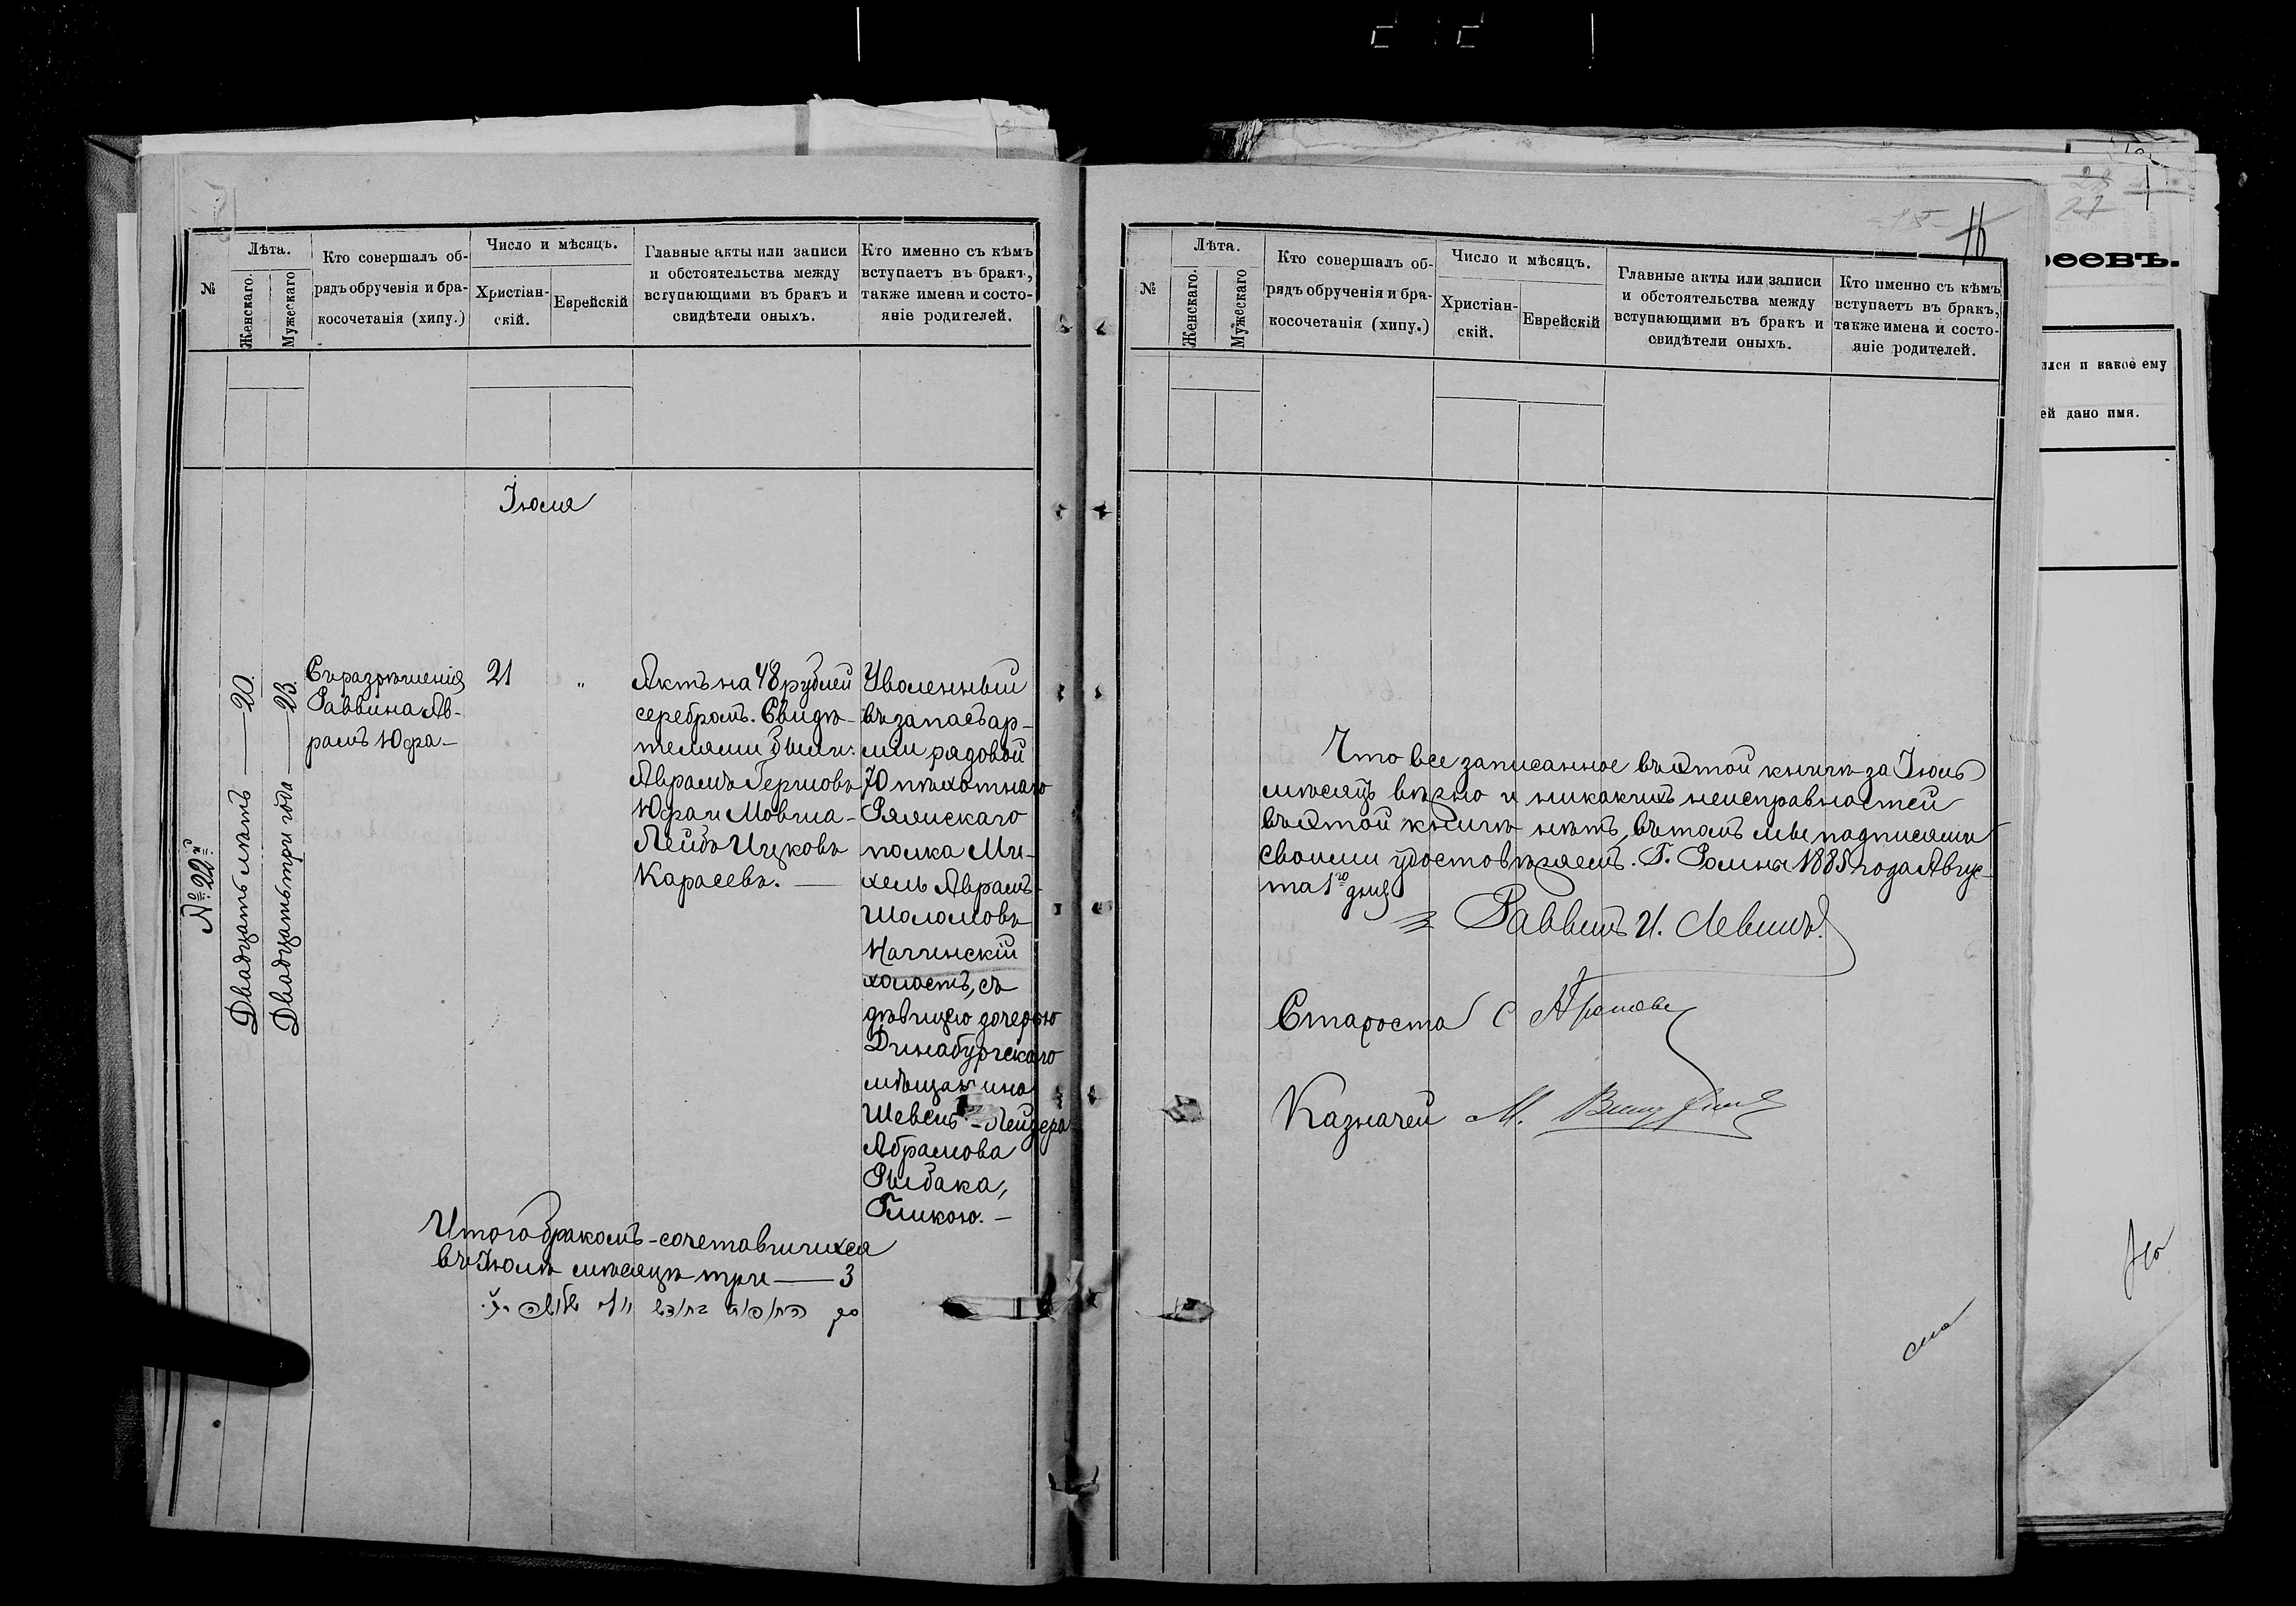 №
Лѣта.
Женскаго.
Мужескаго
Кто совершалъ об-
рядъ обрученія и бра-
косочетанія (хипу.)
Число и мѣсяцъ.
Христіан-
скій.
Еврейскій
Главные акты или записи
и обстоятельства между
вступающими въ бракъ и
свидѣтели оныхъ.
Кто именно съ кѣмъ
вступаетъ въ бракъ,
также имена и состо-
яніе родителей.
Іюля
№ 22й
Двадцать лѣтъ — 20.
Двадцать три года — 23.
Съ разрѣшенія
Раввина Ав-
рамъ Юфа —
21
"
Актъ на 48 рублей
серебромъ. Свидѣ-
телями были:
Аврамъ Гершовъ
Юфа и Мовша-
Лейбъ Ицковъ
Карасевъ. —
Уволенный
въ запасъ ар-
міи рядовой
70 пѣхотнаго
Ряжскаго
полка Ми-
хель Аврамъ-
Шоломовъ
холостъ, съ
дѣвицею дочерью
Динабургскаго
мѣщанина
Шевель-Лейзера
Абрамова
Рыбака,
Гликою. —
Итого бракомъ-сочетавшихся
въ Іюлѣ мѣсяцѣ три — 3
16
№
Лѣта.
Женскаго.
Мужескаго
Кто совершалъ об-
рядъ обрученія и бра-
косочетанія (хипу.)
Число и мѣсяцъ.
Христіан-
скій.
Еврейскій
Главные акты или записи
и обстоятельства между
вступающими въ бракъ и
свидѣтели оныхъ.
Кто именно съ кѣмъ
вступаетъ въ бракъ,
также имена и состо-
яніе родителей.
Что все записанное въ этой книгѣ за Іюль
мѣсяцъ вѣрно и никакихъ неисправностей
въ этой книгѣ нѣтъ, въ томъ мы подписями
своими удостовѣряемъ. Г. Ромны 1885 года Авгус-
та 1го дня
Раввинъ И. Левинъ.
Староста С
Казначей М.
28
27
еевъ.
ился и какое ему
ей дано имя.